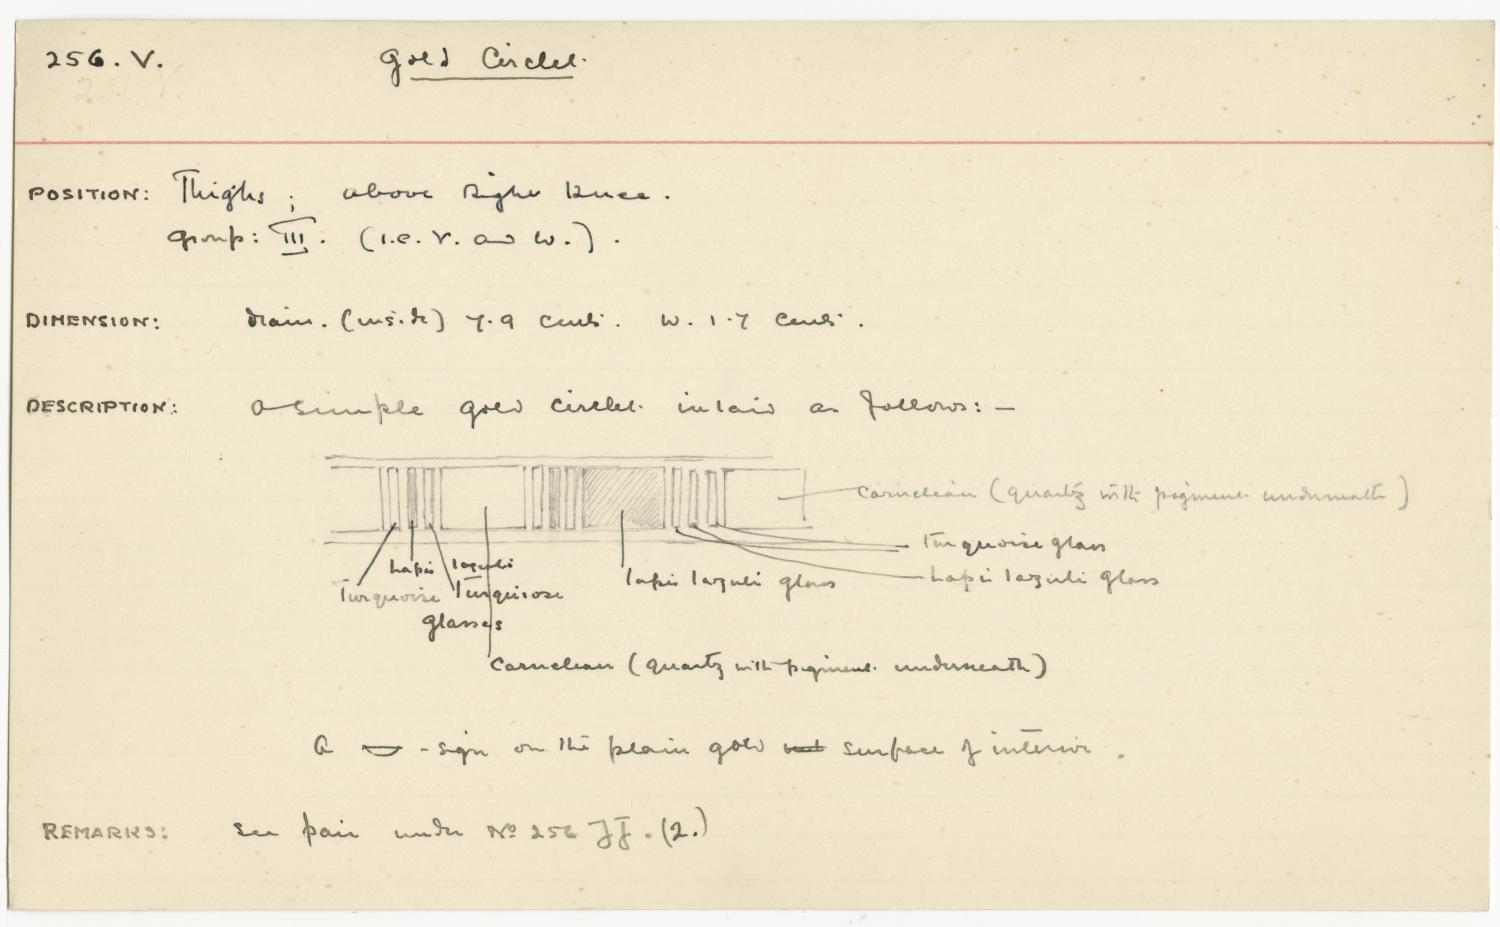 256. V. Gold Circlet.
POSITION: Thighs; above right knee.
Group: III. (i.e. V. and W.).
DIMENSION: diam. (inside) 7.9 cents. W. 1.7 cents.
DESCRIPTION: A simple gold circlet inlaid as follows: —
Carnelian (quartz with pigment underneath)
Turquoise glass
Lapis lazuli
lapis lazuli glass
Lapis lazuli glass
Turquoise Turquiose
glasses
Carnelian (quartz with pigment underneath)
A -sign on the plain gold surface of interior.
REMARKS: See pair under Nº 256 JJ. (2.)